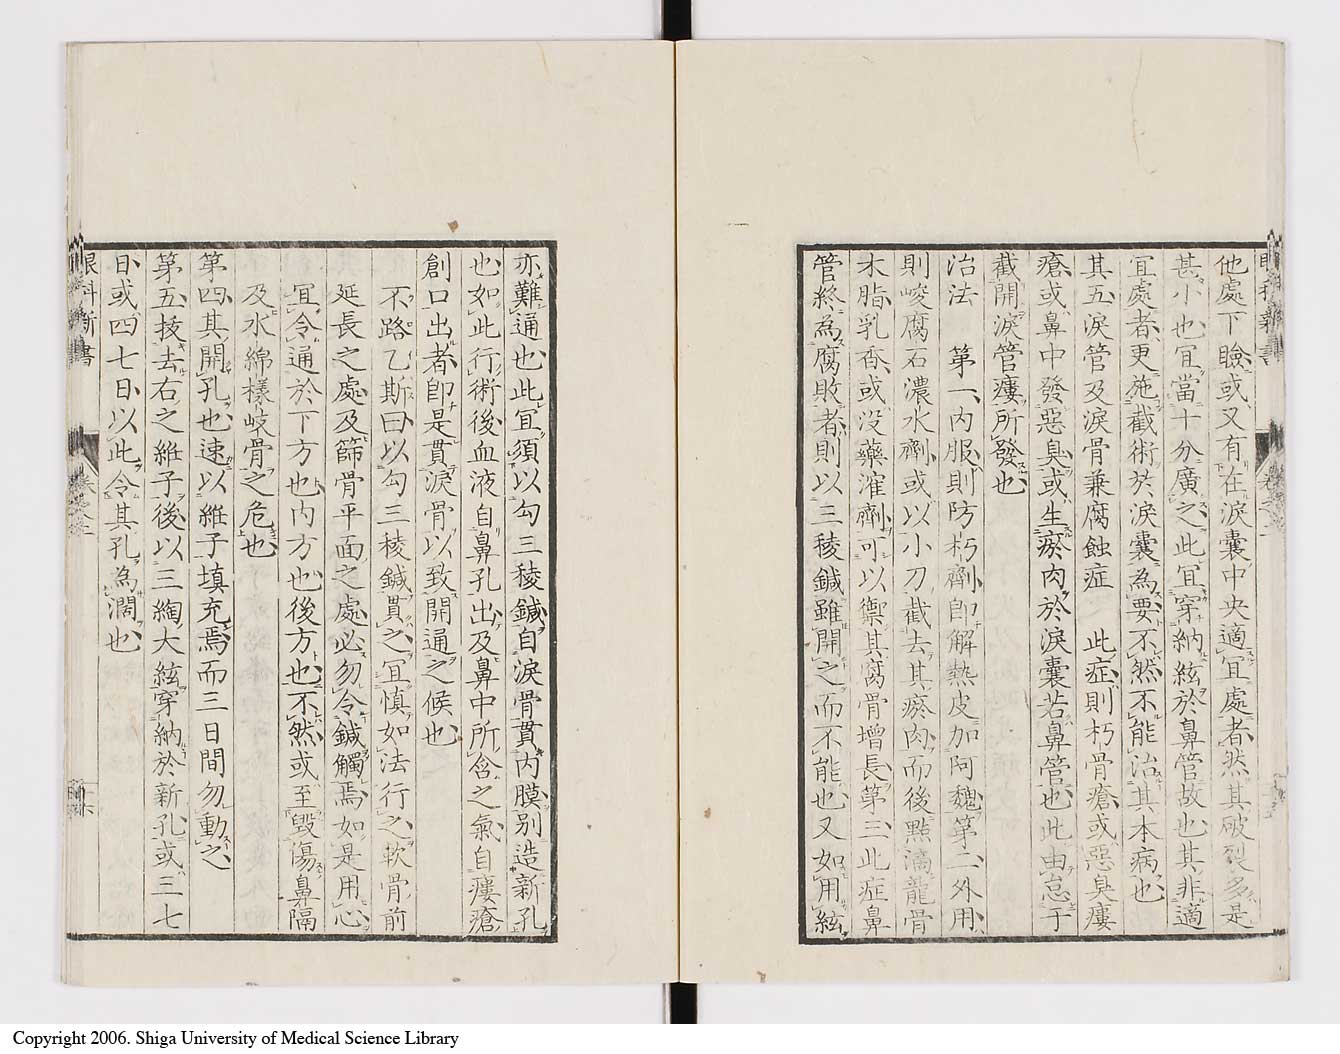 他處下瞼或又有在淚囊中央適宜處者然其破裂多是
甚小也宜當十分廣之此宜穿納絃於鼻管故也其非適
宜處者更施截術於淚囊為要不然不能治其本病也
其五淚管及淚骨兼腐蝕症 此症則朽骨瘡或惡臭瘻
瘡或鼻中發惡臭或生瘀肉於淚囊若鼻管也此由怠于
截開淚管瘻所發也
治法 第一內服則防朽劑即解熱皮加阿魏第二外用
則峻腐石濃水劑或以小刀截去其瘀肉而後點滴龍骨
木脂乳香或没藥漼劑可以禦其腐骨增長第三此症鼻
管終為腐敗者則以三稜鍼雖開之而不能也又如用絃
亦難通也此宜須以勾三稜鍼自淚骨貫內膜別造新孔
也如此行術後血液自鼻孔出及鼻中所含之氣自瘻瘡
創口出者即是貫淚骨以致開通之候也
不路乙斯曰以勾三稜鍼貫之宜慎如法行之軟骨前
延長之處及篩骨平面之處必勿令鍼觸焉如是用心
宜令通於下方也內方也後方也不然或至毀傷鼻隔
及水綿樣岐骨之危也
第四其開孔也速以維子填充焉而三日間勿動之
第五拔去右之維子後以三綯大絃穿納於新孔或三七
日或四七日以此令其孔為濶也
眼科新書 卷之二
Copyright 2006. Shiga University of Medical Science Library